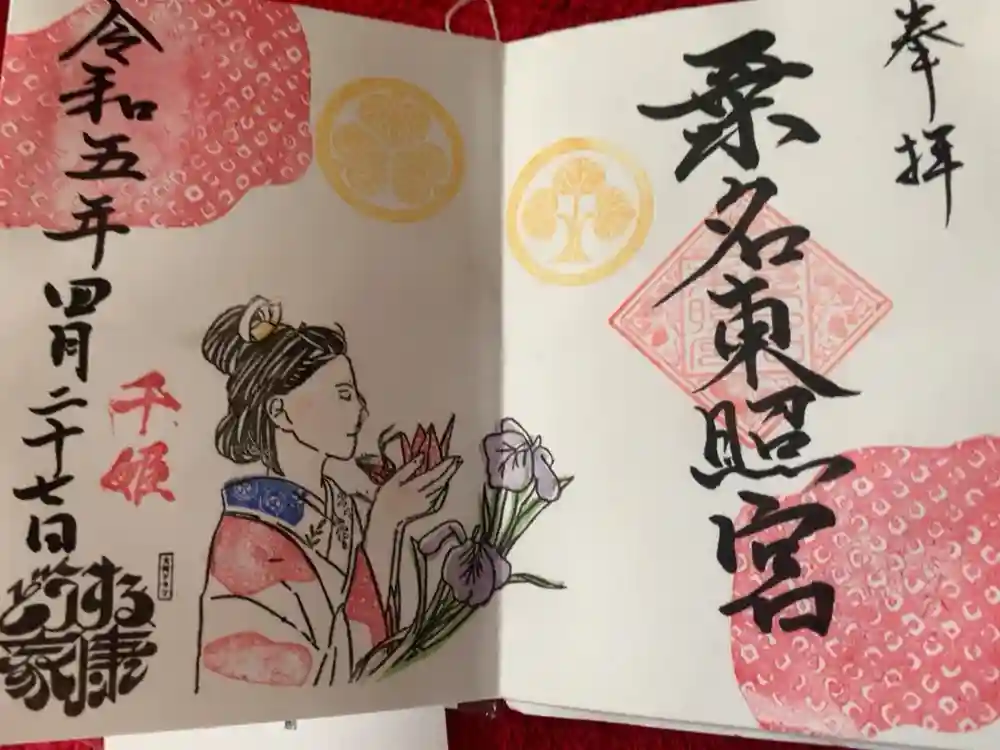 奉拝
桑名東照宮
令和五年四月二十七日
千姫
どうする
家康